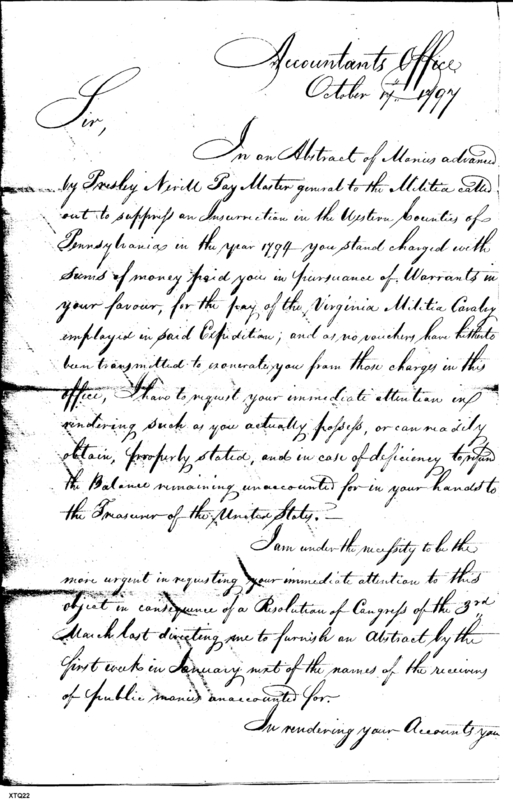 Accountants Office
October 17th 1797
Sir,
In an Abstract of Monies advanced
by Presley Nevill Pay Master general to the Militia called
out to suppress an Insurrection in the Western Counties of
Pennsylvania in the year 1794 you stand charged with
Sums of money paid you in pursuance of Warrants in
your favour, for the pay of the Virginia Militia Cavalry
employed in said Expedition; and as no vouchers have hitherto
been transmitted to exonerate you from those charges in this
office, I have to request your immediate attention in
rendering such as you actually possess, or can readily
obtain, properly stated, and in case of deficiency to refund
the Balance remaining unaccounted for in your hands to
the Treasurer of the United States.—
I am under the necessity to be the
more urgent in requesting your immediate attention to this
object in consequence of a Resolution of Congress of the 3rd
March last directing me to furnish an Abstract by the
first week in January next of the names of the receivers
of public monies unaccounted for.
In rendering your Accounts you
XTQ22